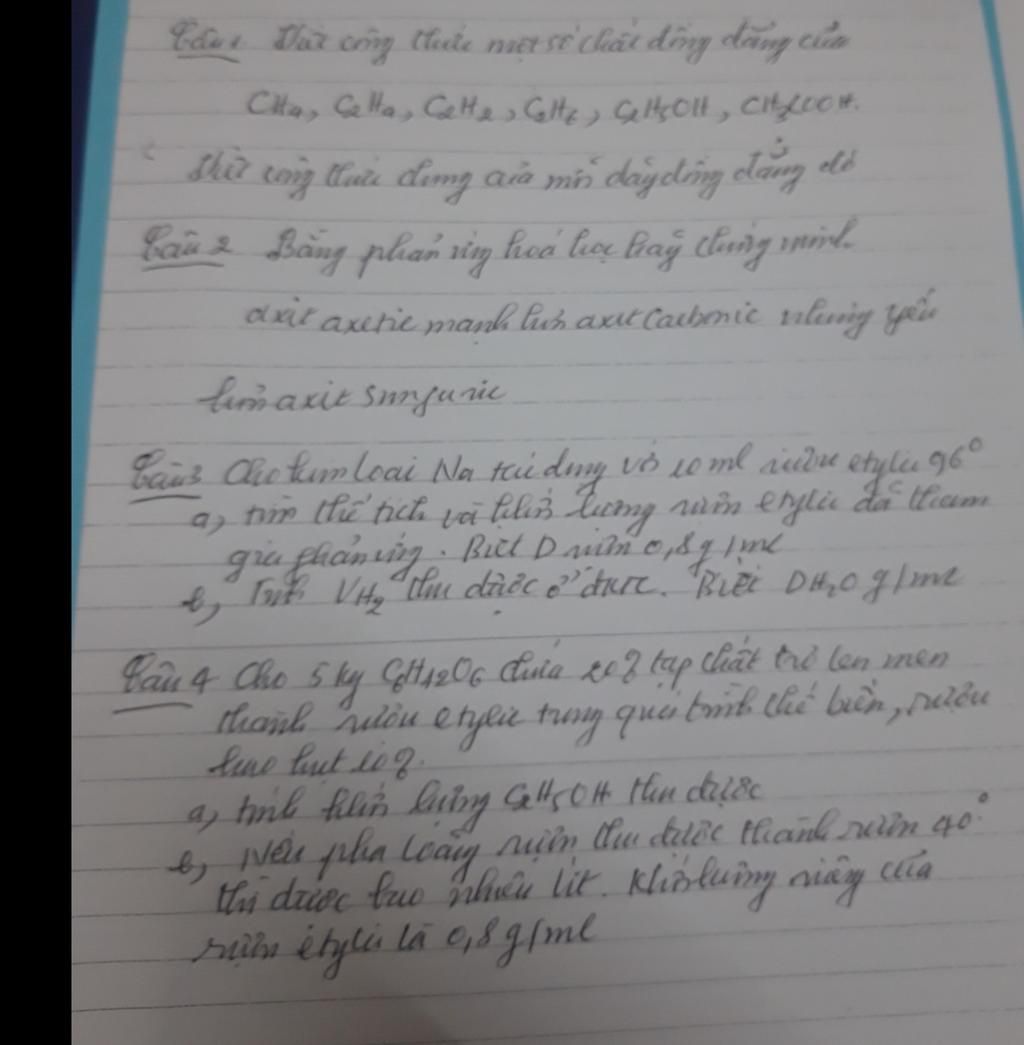 Câu 1 Viết công thức một số chất đồng đẳng của
CH4, C2H4, C2H2, C6H6, C2H5OH, CH3COOH.
Viết công thức chung của mỗi dãy đồng đẳng đó
Câu 2 Bằng phản ứng hoá học hãy chứng minh
axit axetic mạnh hơn axit Cacbonic nhưng yếu
hơn axit sunfuric
Câu 3 Cho kim loại Na tác dụng với 10 ml rượu etylic 96°
a, tìm thể tích và khối lượng rượu etylic đã tham
gia phản ứng. Biết D rượu 0,8g/ml
b, Tính VH2 thu được ở đktc. Biết DH2O g/ml
Câu 4 Cho 5 kg C6H12O6 chứa 20% tạp chất trơ lên men
thành rượu etylic trong quá trình chế biến, rượu
hao hụt 10%.
a, tính khối lượng C2H5OH thu được
b, Nếu pha loãng rượu thu được thành rượu 40°
thì được bao nhiêu lít. Khối lượng riêng của
rượu êtylic là 0,8g/ml